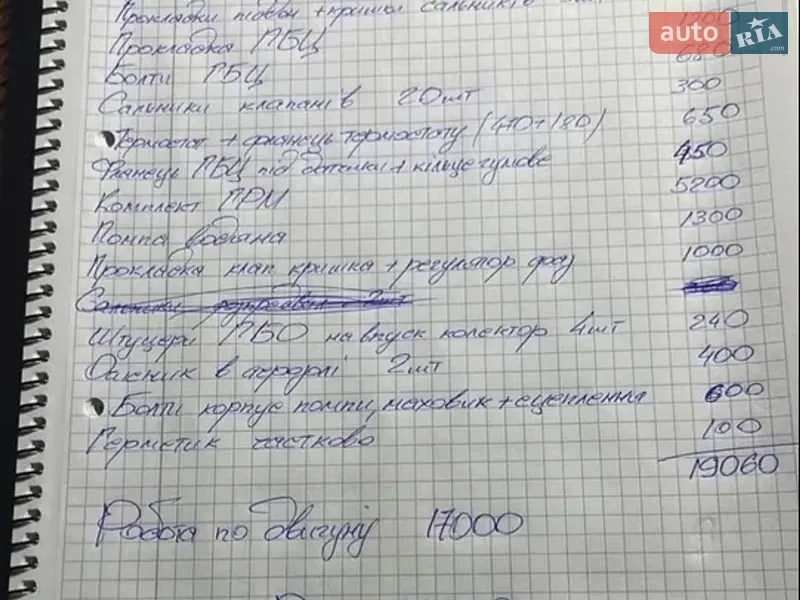 Прокладки піддон + кришки сальників
1200
Прокладка ГБЦ 680
Болти ГБЦ 300
Сальники клапанів 20шт 650
Термостат + фланець термостату (470+180)
Фланець ГБЦ під датчики + кільце гумове 450
Комплект ГРМ 5200
Помпа водяна 1300
Прокладка клап. кришка + регулятор фаз 1000
Штуцери ГБО на впуск колектор 4шт 240
Сальник в 2шт 400
Болти корпус помпи, маховик + сцеплення 600
Герметик частково 100
19060
Работа по двигуну 17000
auto RIA .com